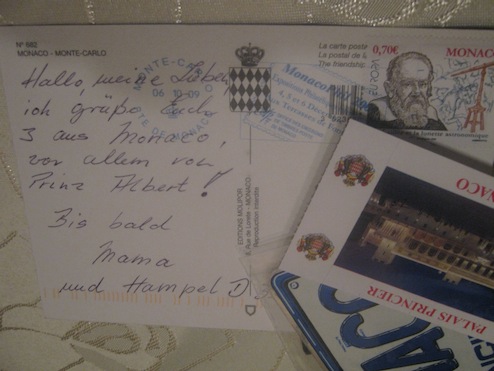 N° 682
MONACO - MONTE-CARLO
Hallo, meine Lieben,
ich grüße Euch
3 aus Monaco,
vor allem von
Prinz Albert!
Bis bald
Mama
und Hampel D
MONTE-CARLO
06 10-09
PTE DE MONACO
EDITIONS MOLIPOR
8, Rue de Lorete - MONACO
Reproduction Interdite
La carte posta
La postal de l
The friendship
0,70€
MONAC
de la lunette astronomique
PALAIS PRINCIER
ACO